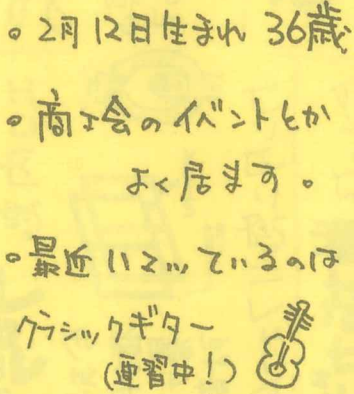 。2月12日生まれ 36歳
。商工会のイベントとか
よく居ます。
。最近ハマっているのは
クラシックギター
(練習中!)